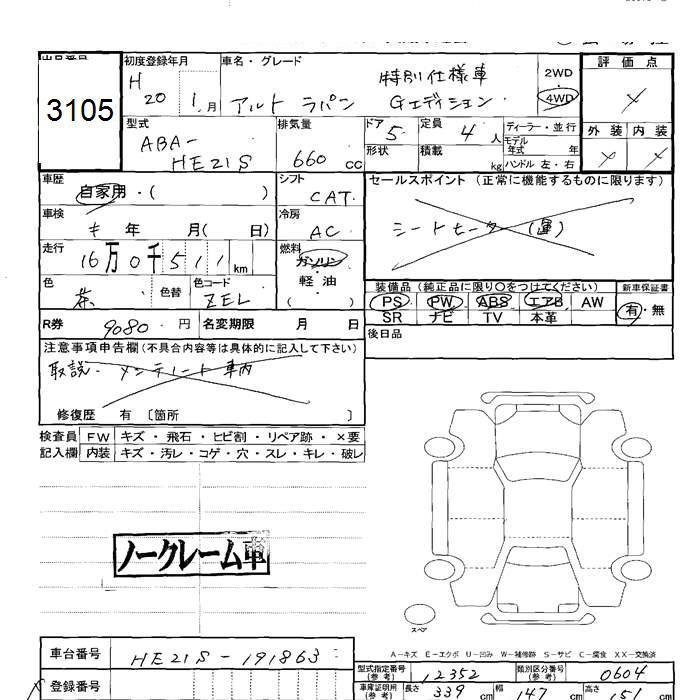 出品番号 初度登録年月 車名・グレード 評価点
3105 H 20 1月 アルト ラパン 特別仕様車 Gエディション 2WD 4WD
型式 排気量 ドア 5 定員 4 人 ディーラー・並行 外装 内装
ABA- HE21S 660 cc 形状 積載 kg モデル年式 年 ハンドル 左・右
車歴 自家用・( ) シフト CAT セールスポイント (正常に機能するものに限ります)
車検 キ 年 月( 日) 冷房 AC シートヒーター (運)
走行 16万0千511km 燃料 ガソリン 軽油 ( )
色 茶 色替 色コード ZEL 装備品 (純正品に限り〇をつけてください) 新車保証書
PS PW ABS エアB AW 有・無
SR ナビ TV 本革
R券 9080 円 名変期限 月 日 後日品
注意事項申告欄 (不具合内容等は具体的に記入して下さい)
取説・メンテノート車内
修復歴 有 〔箇所 〕
検査員 FW キズ・飛石・ヒビ割・リペア跡・×要
記入欄 内装 キズ・汚レ・コゲ・穴・スレ・キレ・破レ
ノークレーム車
スペア
A-キズ E-エクボ U-凹み W-補修跡 S-サビ C-腐食 XX-交換済
車台番号 HE21S-191863
型式指定番号 (参考) 12352 類別区分番号 (参考) 0604
登録番号
車庫証明用 (参考) 長さ 339 cm 幅 147 cm 高さ 151 cm